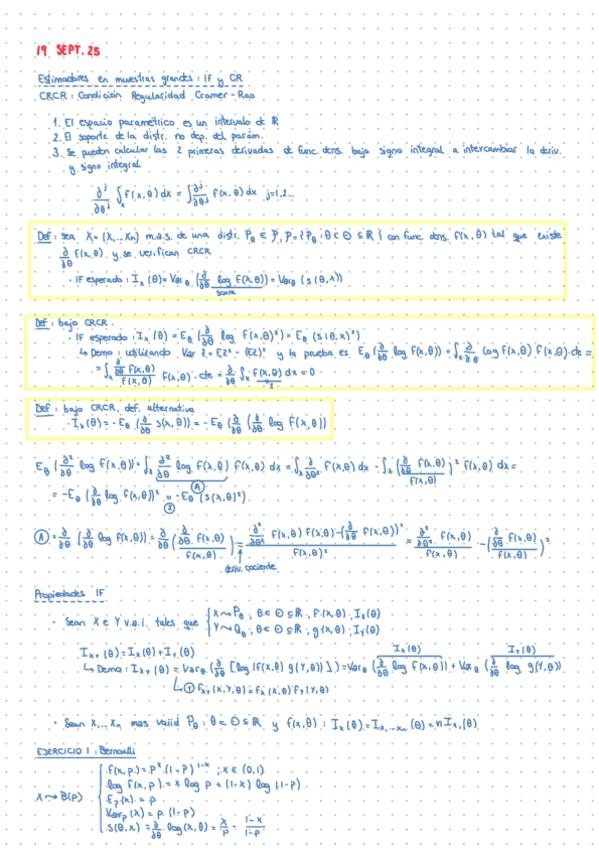 19 SEPT. 25
Estimadores en muestras grandes: IF y CR
CRCR: Condición Regularidad Cramer-Rao
1. El espacio paramétrico es un intervalo de ℝ
2. El soporte de la distr. no dep. del parám.
3. Se pueden calcular las 2 primeras derivadas de func. dens. bajo signo integral a intercambiar la deriv.
y signo integral
∂ʲ/∂θʲ ∫ₓ f(x,θ) dx = ∫ ∂ʲ/∂θʲ f(x,θ) dx j=1,2...
Def: sea X=(X₁...Xn) m.a.s. de una distr. Pθ ∈ P, P={Pθ: θ ∈ Θ ⊆ ℝ} con func dens. f(x,θ) tal que existe
∂/∂θ f(x,θ) y se verifican CRCR
· IF esperado: Iₓ(θ) = Varθ (∂/∂θ log f(x,θ)) = Varθ (s(θ,x))
score
Def: bajo CRCR.
· IF esperado: Iₓ(θ) = Eθ (∂/∂θ log f(x,θ)²) = Eθ (s(θ,x)²)
↳ Demo: utilizando Var Z = EZ² - (EZ)² y la prueba es Eθ (∂/∂θ log f(x,θ)) = ∫ₓ ∂/∂θ log f(x,θ) f(x,θ) · dx =
= ∫ₓ (∂/∂θ f(x,θ))/f(x,θ) f(x,θ) · dx = ∂/∂θ ∫ₓ f(x,θ) dx = 0
1
Def: bajo CRCR, def. alternativa
· Iₓ(θ) = -Eθ (∂/∂θ s(x,θ)) = -Eθ (∂/∂θ (∂/∂θ log f(x,θ))
Eθ (∂²/∂θ² log f(x,θ)) = ∫ₓ ∂²/∂θ² log f(x,θ) f(x,θ) dx = ∫ₓ ∂²/∂θ² f(x,θ) dx - ∫ₓ (∂/∂θ f(x,θ)/f(x,θ))² f(x,θ) dx =
Ⓐ
= -Eθ (∂/∂θ log f(x,θ))² = -Eθ (s(x,θ)²).
②
Ⓐ = ∂/∂θ (∂/∂θ log f(x,θ)) = ∂/∂θ (∂/∂θ f(x,θ)/f(x,θ)) = (∂²/∂θ² f(x,θ) f(x,θ) - (∂/∂θ f(x,θ))²)/f(x,θ)² = (∂²/∂θ² f(x,θ))/f(x,θ) - (∂/∂θ f(x,θ)/f(x,θ))²
deriv. cociente
Propiedades IF
· Sean X e Y v.a.i. tales que { X⤳Pθ, θ ∈ Θ ⊆ ℝ, f(x,θ), Iₓ(θ)
Y⤳Qθ, θ ∈ Θ ⊆ ℝ, g(x,θ), I_Y(θ)
Iₓ,Y(θ) = Iₓ(θ) + I_Y(θ)
Iₓ(θ) I_Y(θ)
↳ Demo: Iₓ,Y(θ) = Varθ (∂/∂θ [log(f(x,θ) g(Y,θ))]) = Varθ (∂/∂θ log f(x,θ)) + Varθ (∂/∂θ log g(Y,θ))
↳ ① fₓ,Y(x,Y,θ) = fₓ(x,θ) f_Y(Y,θ)
· Sean X₁...Xn mas vaiid Pθ: θ ∈ Θ ⊆ ℝ y f(x,θ): Iₓ(θ) = Iₓ₁...ₓn(θ) = n Iₓ₁(θ)
EJERCICIO 1: Bernoulli
X⤳B(p) { f(x,p) = pˣ (1-p)¹⁻ˣ; x ∈ (0,1)
log f(x,p) = x log p + (1-x) log (1-p)
Ep(x) = p
Varp(x) = p (1-p)
s(θ,x) = ∂/∂θ log(x,θ) = x/p - (1-x)/(1-p)